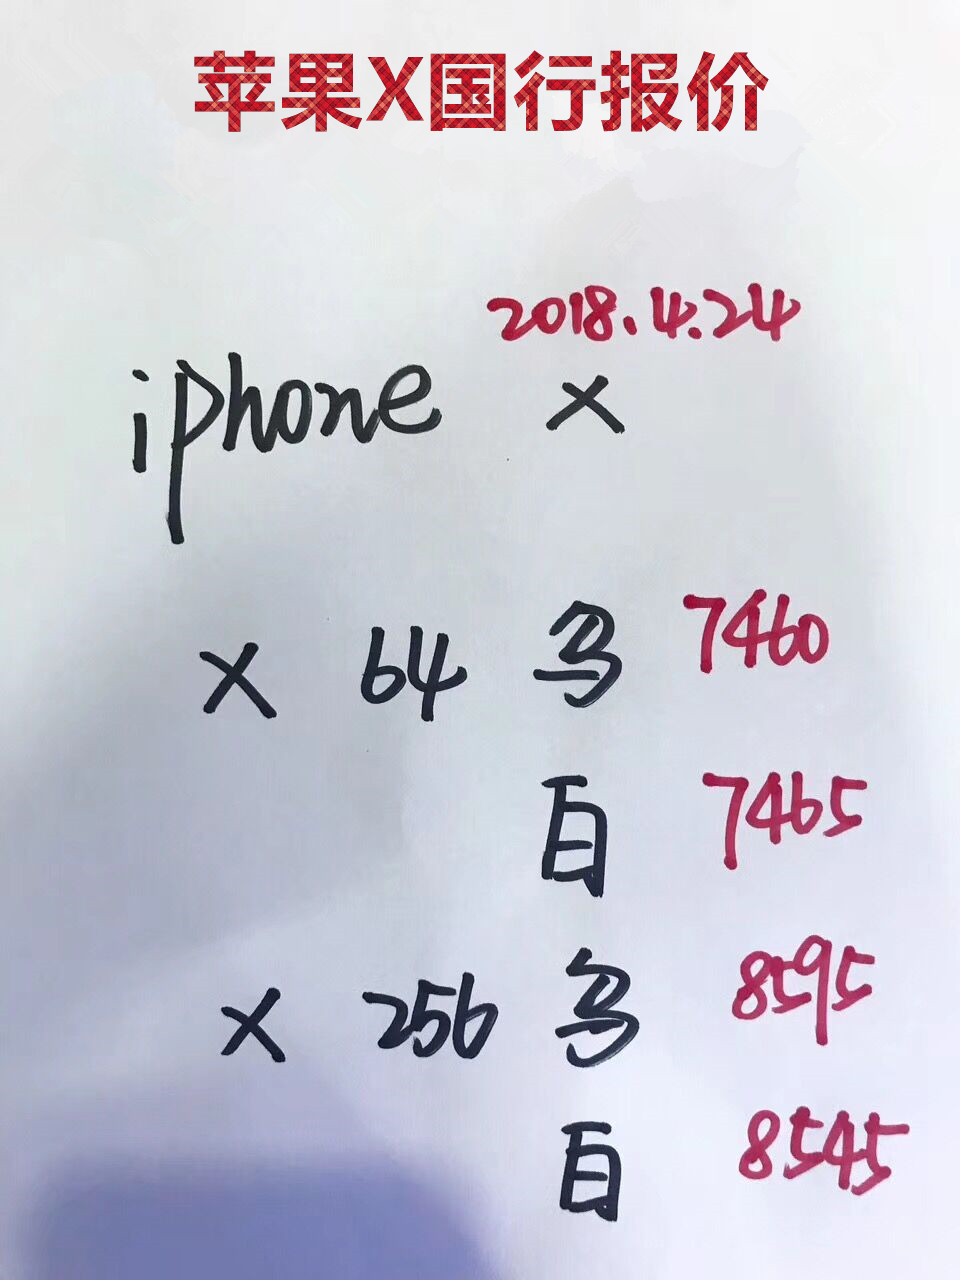 苹果X国行报价
2018.4.24
iphone X
X 64 乌 7460
白 7465
X 256 乌 8595
白 8545